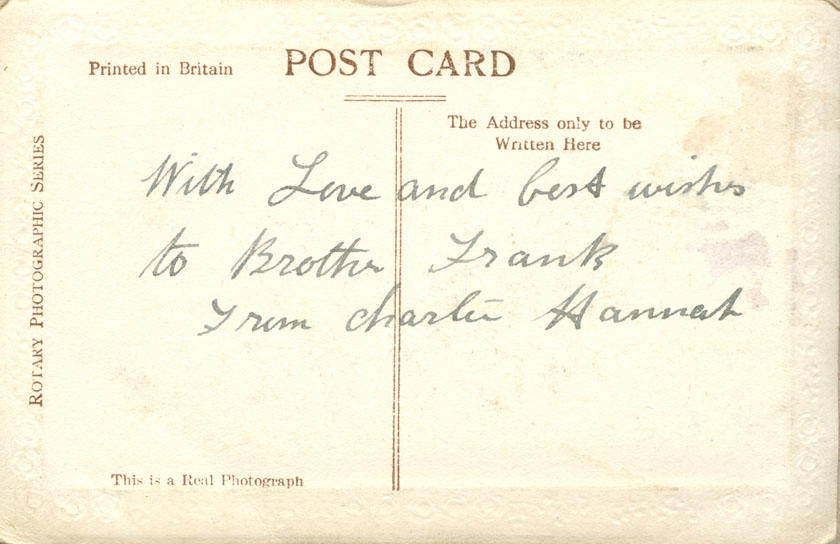 Printed in Britain
POST CARD
The Address only to be
Written Here
ROTARY PHOTOGRAPHIC SERIES
With Love and best wishes
to Brother Frank
From charlie Hannah
This is a Real Photograph